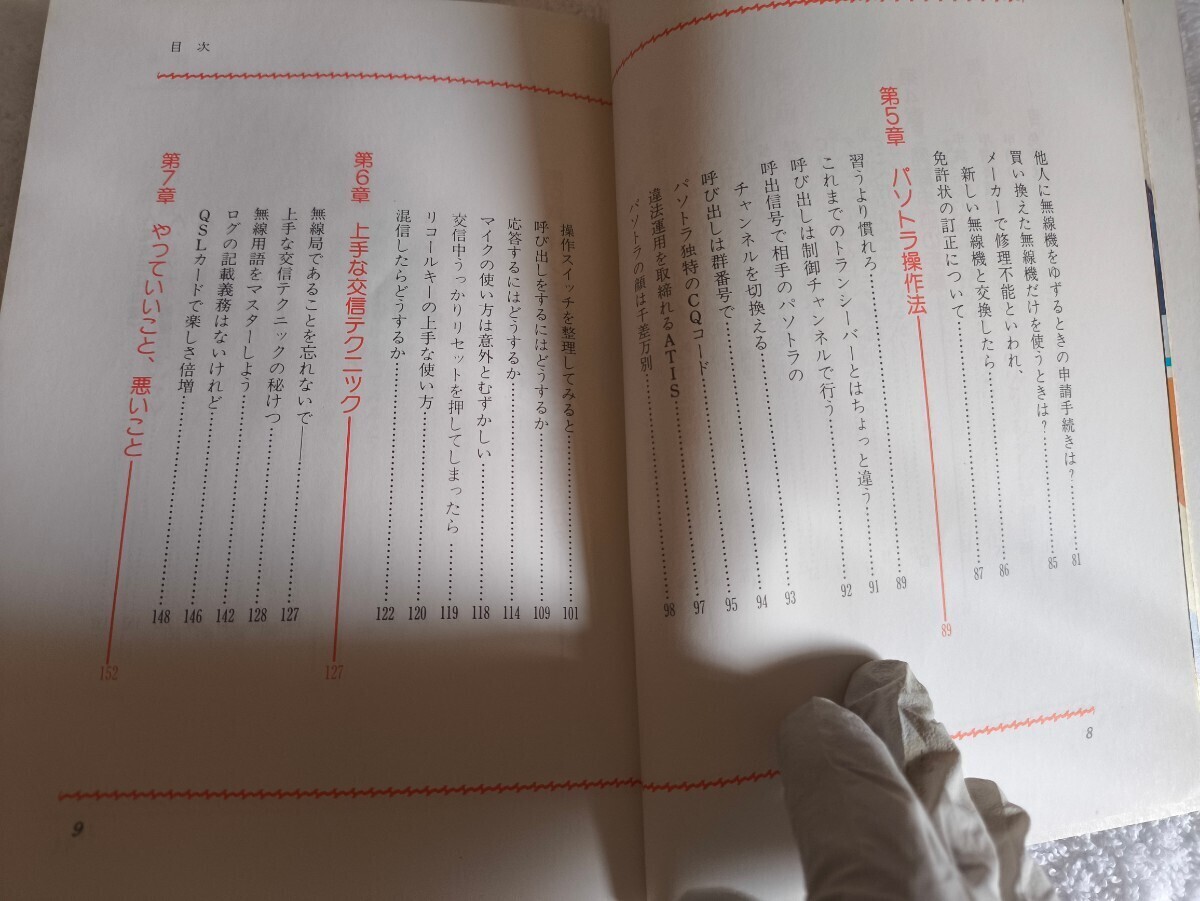 他人に無線機をゆずるときの申請手続きは?……81
買い換えた無線機だけを使うときは?……85
メーカーで修理不能といわれ、
新しい無線機と交換したら……86
免許状の訂正について……87
第5章 パソトラ操作法——89
習うより慣れろ……89
これまでのトランシーバーとはちょっと違う?……91
呼び出しは制御チャンネルで行う……92
呼出信号で相手のパソトラの
チャンネルを切換える……93
呼び出しは群番号で……94
パソトラ独特のCQコード……95
違法運用を取締れるATIS……97
パソトラの顔は千差万別……98
8
目次
操作スイッチを整理してみると……101
呼び出しをするにはどうするか……109
応答するにはどうするか……114
マイクの使い方は意外とむずかしい……118
交信中うっかりリセットを押してしまったら……119
リコールキーの上手な使い方……120
混信したらどうするか……122
第6章 上手な交信テクニック——127
無線局であることを忘れないで——127
上手な交信テクニックの秘けつ……128
無線用語をマスターしよう……142
ログの記載義務はないけれど……146
QSLカードで楽しさ倍増……148
第7章 やっていいこと、悪いこと——152
9